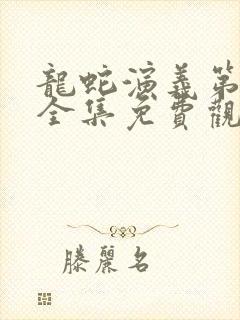 龍蛇演義第
全集免費觀
滕麗名